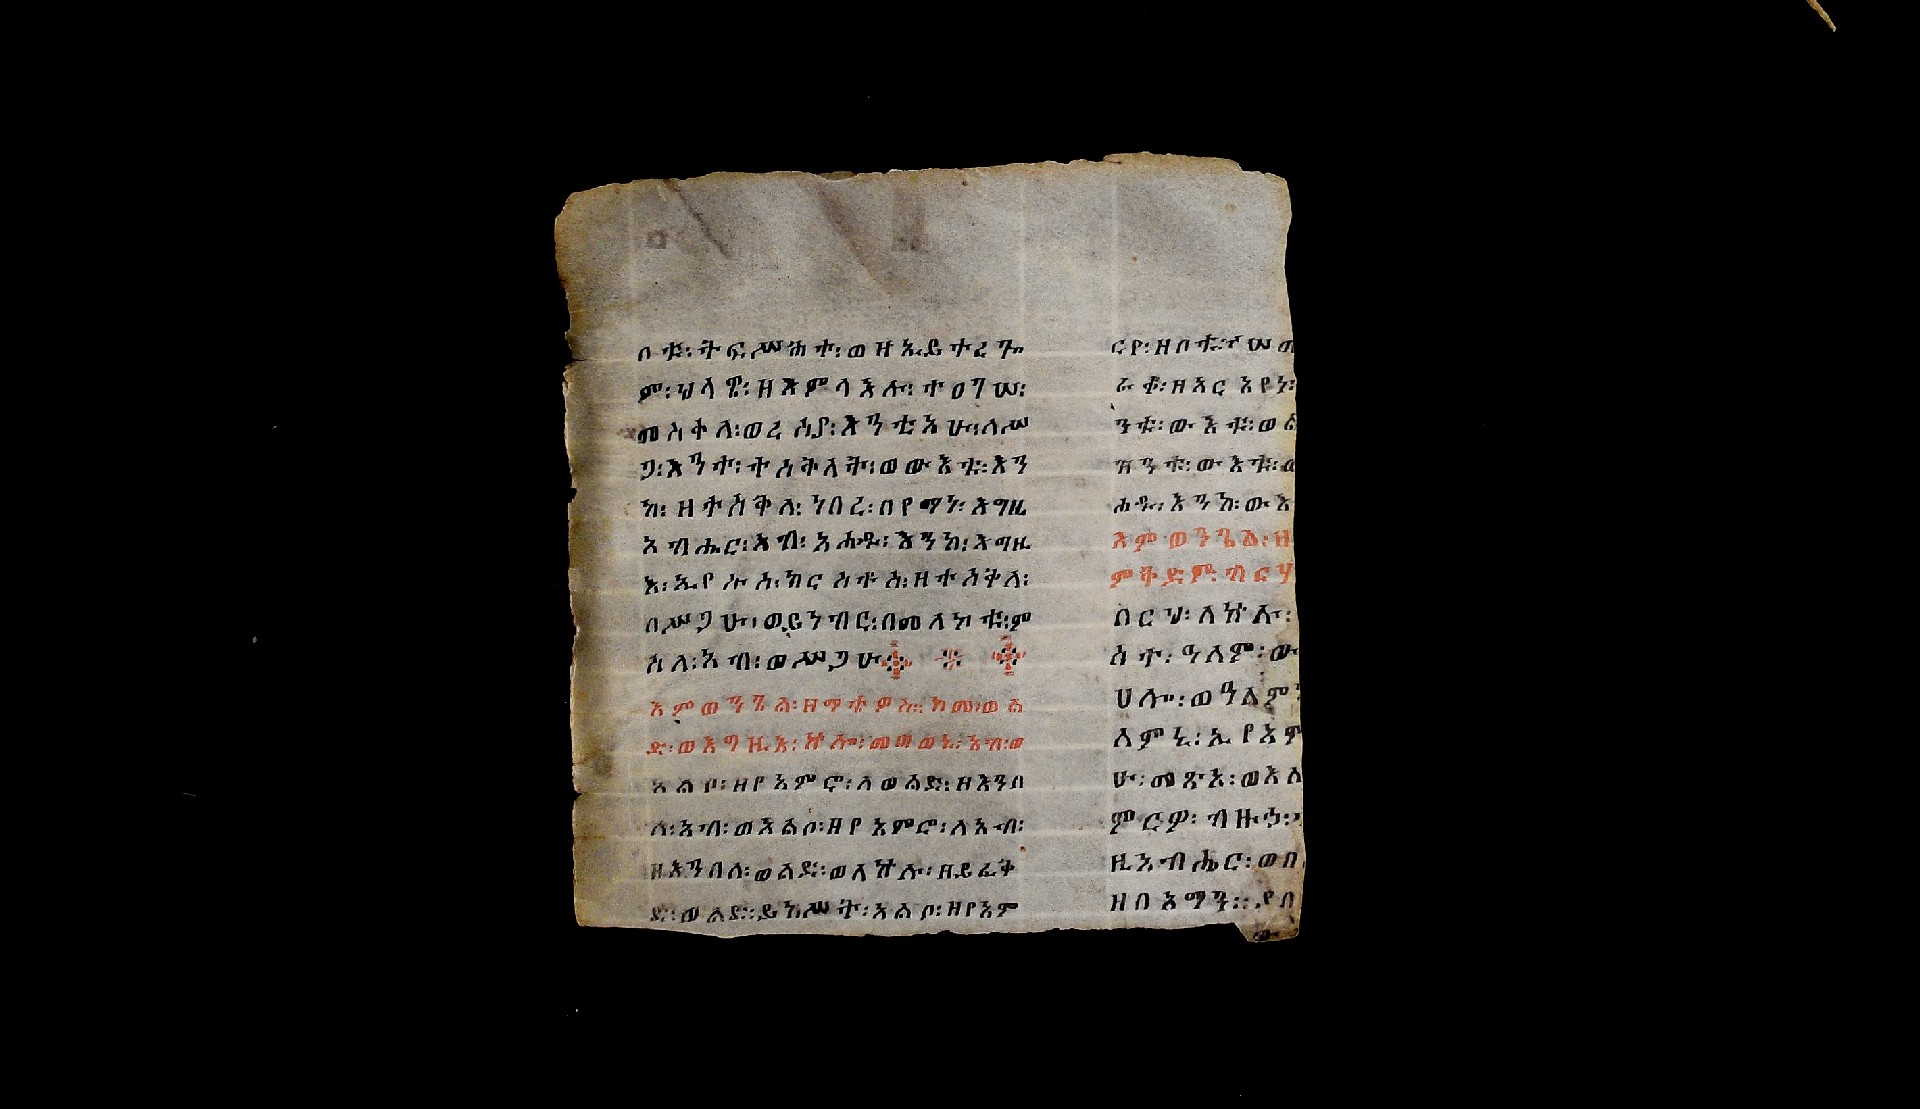 ቦቱ፡ ትፍሥሕተ፡ ወዘኢይተረጐ
ም፡ ህላዌ፡ ዘእምላእሉ፡ ተዐግሠ፡
መስቀለ፡ ወረሰያ፡ እንቲአሁ፡ ለሥ
ጋ፡ እንተ፡ ተሰቅለት፡ ወውእቱ፡ እን
ከ፡ ዘተሰቅለ፡ ነበረ፡ በየማነ፡ እግዚ
አብሔር፡ አብ፡ አሐዱ፡ እንከ፡ እግዚ
እ፡ ኢየሱስ፡ ክርስቶስ፡ ዘተሰቅለ፡
በሥጋሁ፡ ወይነብር፡ በመለኮቱ፡ ም
ስለ፡ አብ፡ ወሥጋሁ
እምወንጌል፡ ዘማቴዎስ፡ ከመ፡ ወል
ድ፡ ወእግዚእ፡ ኵሎ፡ መጠወኒ፡ አብ፡ ወ
አልቦ፡ ዘየአምሮ፡ ለወልድ፡ ዘእንበ
ለ፡ አብ፡ ወአልቦ፡ ዘየአምሮ፡ ለአብ፡
ዘእንበለ፡ ወልድ፡ ወለኵሉ፡ ዘይፈቅ
ድ፡ ወልድ፡ ይከሥት፡ አልቦ፡ ዘየአም
ርየ፡ ዘቦቱ፡ ሠ
ራቂ፡ ዘአር አየነ፡
ንቱ፡ ውእቱ፡ ወል
ዝንቱ፡ ውእቱ፡
ሐዱ፡ እንከ፡ ውእ
እምወንጌል፡ ዘ
ምቅድም፡ ብርሃ
በርህ፡ ለኵሉ፡
ስተ፡ ዓለም፡ ው
ሀሎ፡ ወዓለም
ለምኒ፡ ኢየአም
ሁ፡ መጽአ፡ ወእለ
ምርዎ፡ ብዙኃ፡
ዚአብሔር፡ ወበ
ዘበአማን። የበ